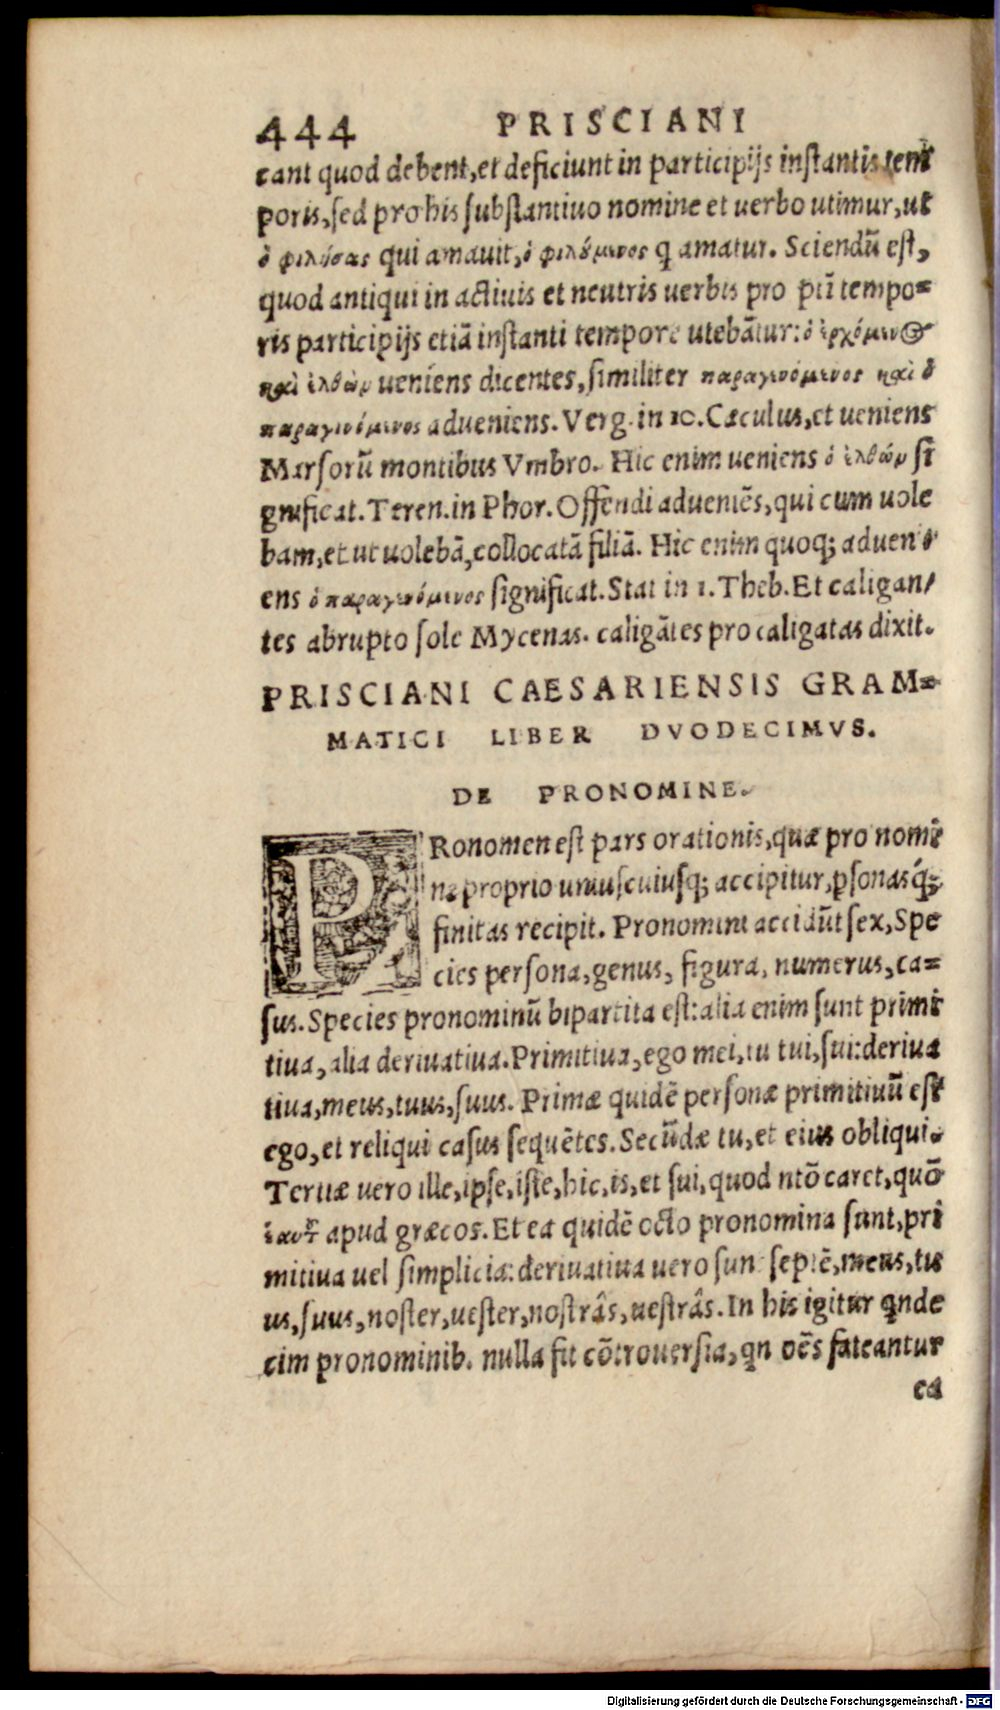 444 PRISCIANI
cant quod debent, et deficiunt in participijs instantis tem
poris, sed pro his substantiuo nomine et uerbo utimur, ut
ὁ φιλήσας qui amauit, ὁ φιλούμενος q amatur. Sciendū est,
quod antiqui in actiuis et neutris uerbis pro ptī tempo=
ris participijs etiā instanti tempore utebātur: ὁ ἐρχόμενος
καὶ ἐλθὼν ueniens dicentes, similiter παραγινόμενος καὶ ὁ
παραγινόμενος adueniens. Verg. in 10. Caeculus, et ueniens
Marsorū montibus Vmbro. Hic enim ueniens ὁ ἐλθὼν si
gnificat. Teren. in Phor. Offendi adueniēs, qui cum uole
bam, et ut uolebā, collocatā filiā. Hic enim quoq; adueni
ens ὁ παραγινόμενος significat. Stat in 1. Theb. Et caligan/
tes abrupto sole Mycenas. caligātes pro caligatas dixit.
PRISCIANI CAESARIENSIS GRAM=
MATICI LIBER DVODECIMVS.
DE PRONOMINE.
PRonomen est pars orationis, quæ pro nomi
ne proprio uniuscuiusq; accipitur, psonasq́;
finitas recipit. Pronomini accidūt sex, Spe
cies persona, genus, figura, numerus, ca=
sus. Species pronominū bipartita est: alia enim sunt primi
tiua, alia deriuatiua. Primitiua, ego mei, tu tui, sui: deriua
tiua, meus, tuus, suus. Primæ quidē personæ primitiuū est
ego, et reliqui casus sequētes. Secūdæ tu, et eius obliqui.
Tertiæ uero ille, ipse, iste, hic, is, et sui, quod ntō caret, quō
apud græcos. Et ea quidē octo pronomina sunt, pri
mitiua uel simplicia: deriuatiua uero sunt septē, meus, tu
us, suus, noster, uester, nostrâs, uestrâs. In his igitur qnde
cim pronominib. nulla fit cōtrouersia, qn oēs fateantur
ea
Digitalisierung gefördert durch die Deutsche Forschungsgemeinschaft - DFG